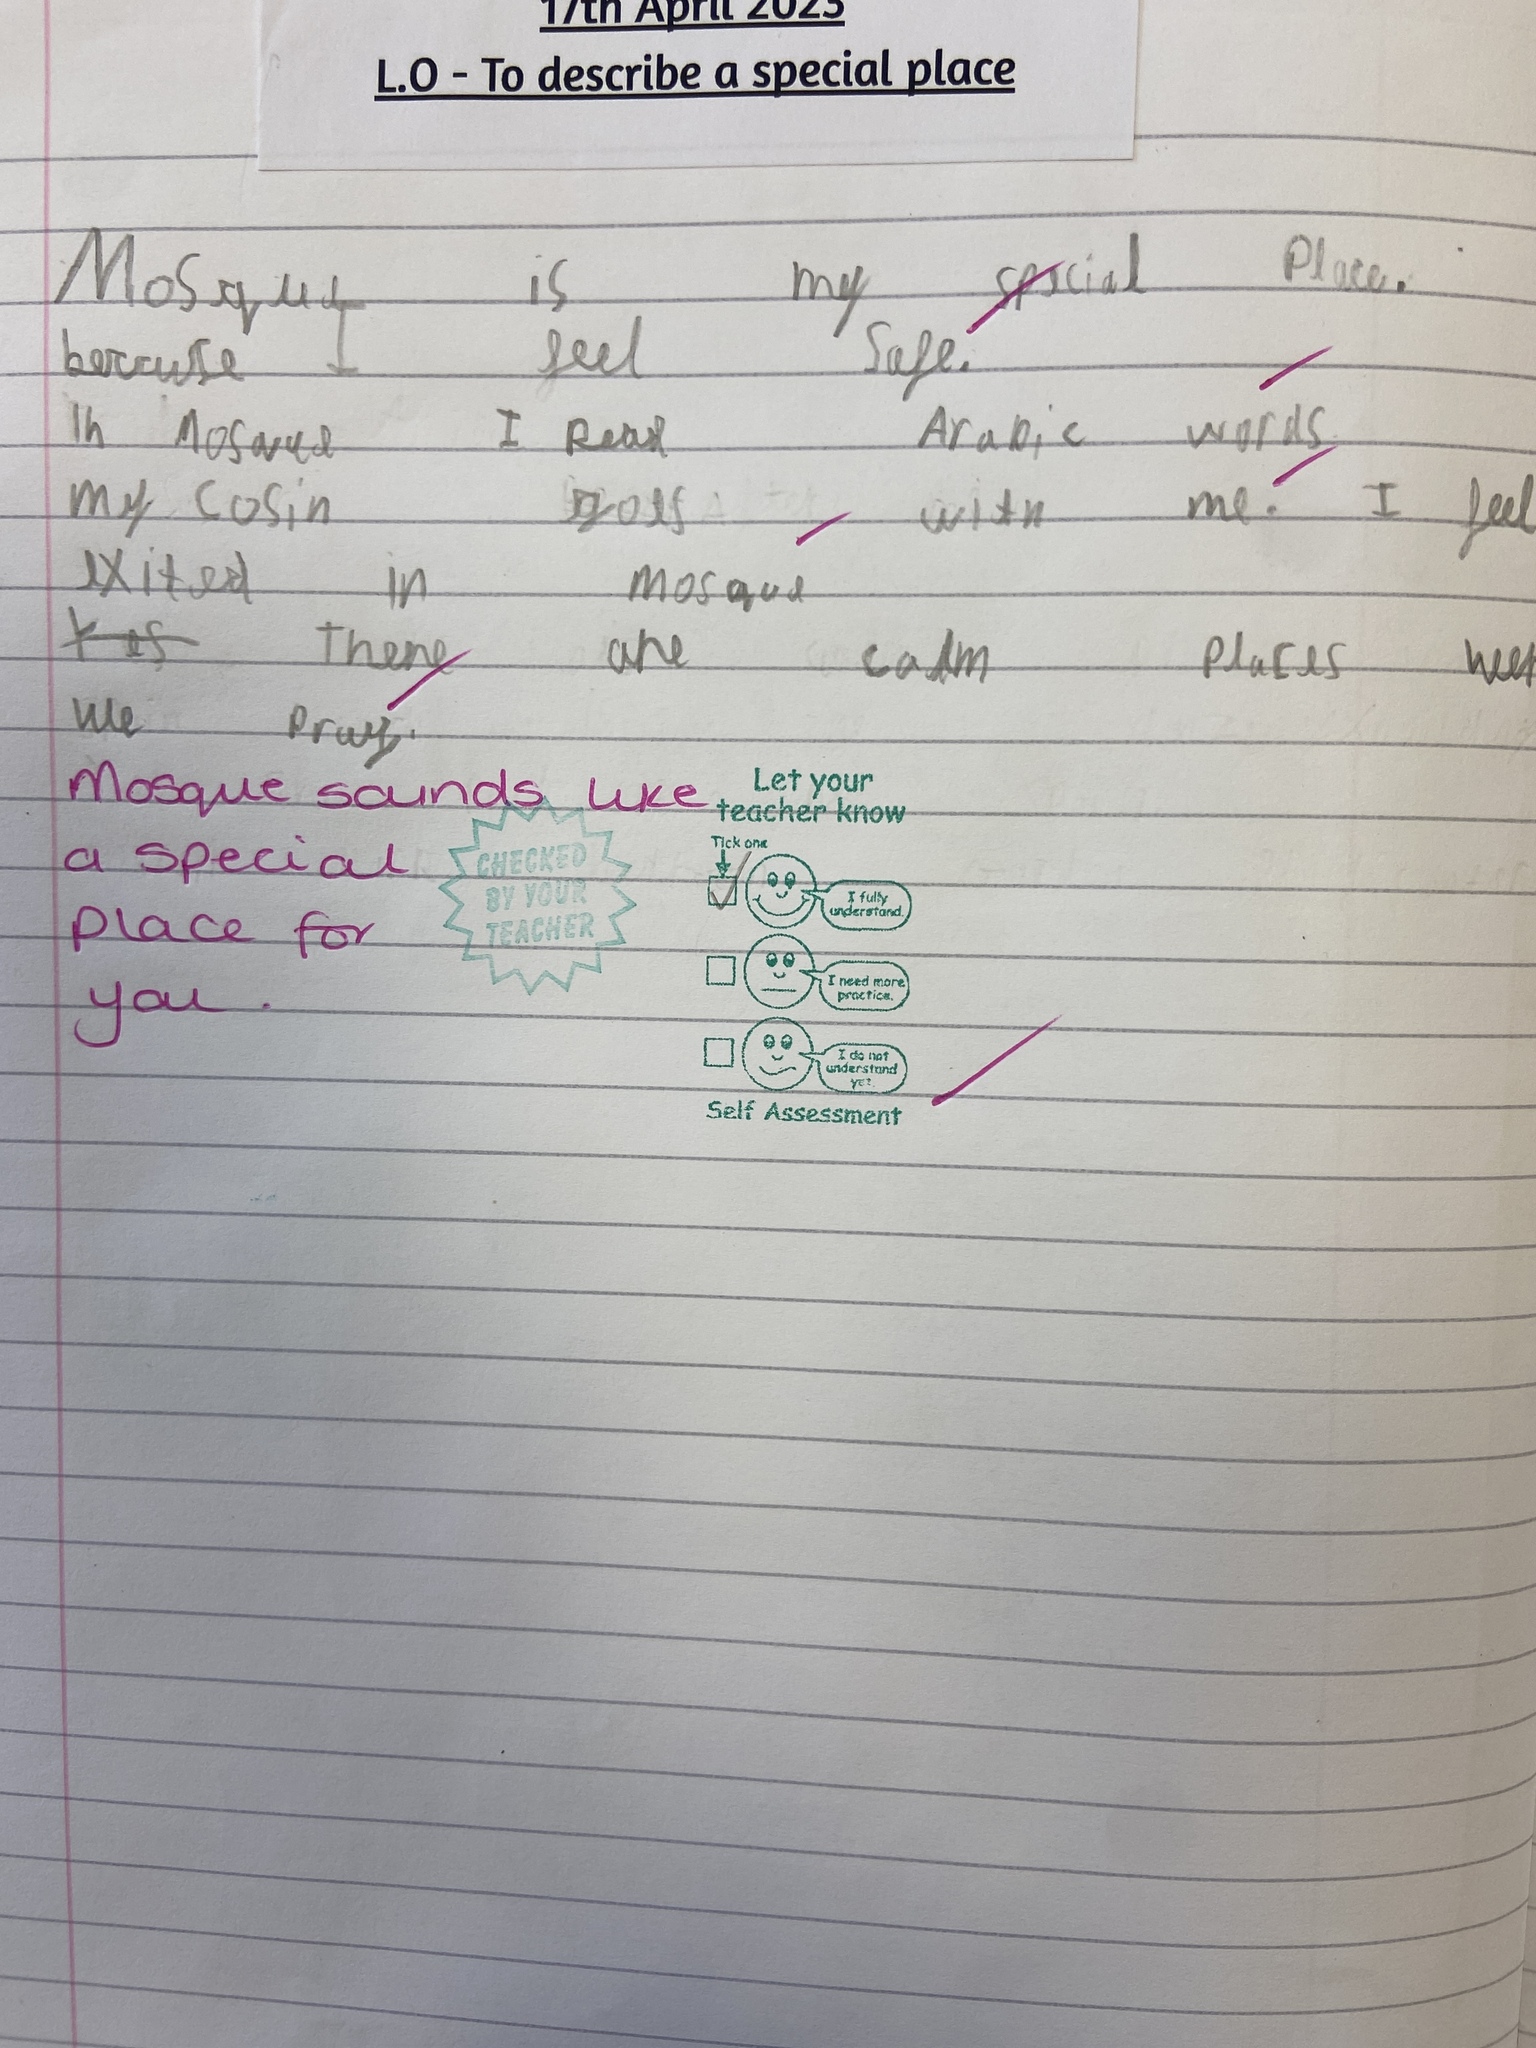 17th April 2023
L.O - To describe a special place
Mosque is my special Place.
because I feel Safe.
In Mosque I Read Arabic words
my Cosin goes with me. I feel
exited in mosque
There are calm Places
we Pray.
Mosque sounds like
a special
place for
you.
CHECKED
BY YOUR
TEACHER
Let your
teacher know
Tick one
I fully
understand.
I need more
practice.
I do not
understand
yet.
Self Assessment